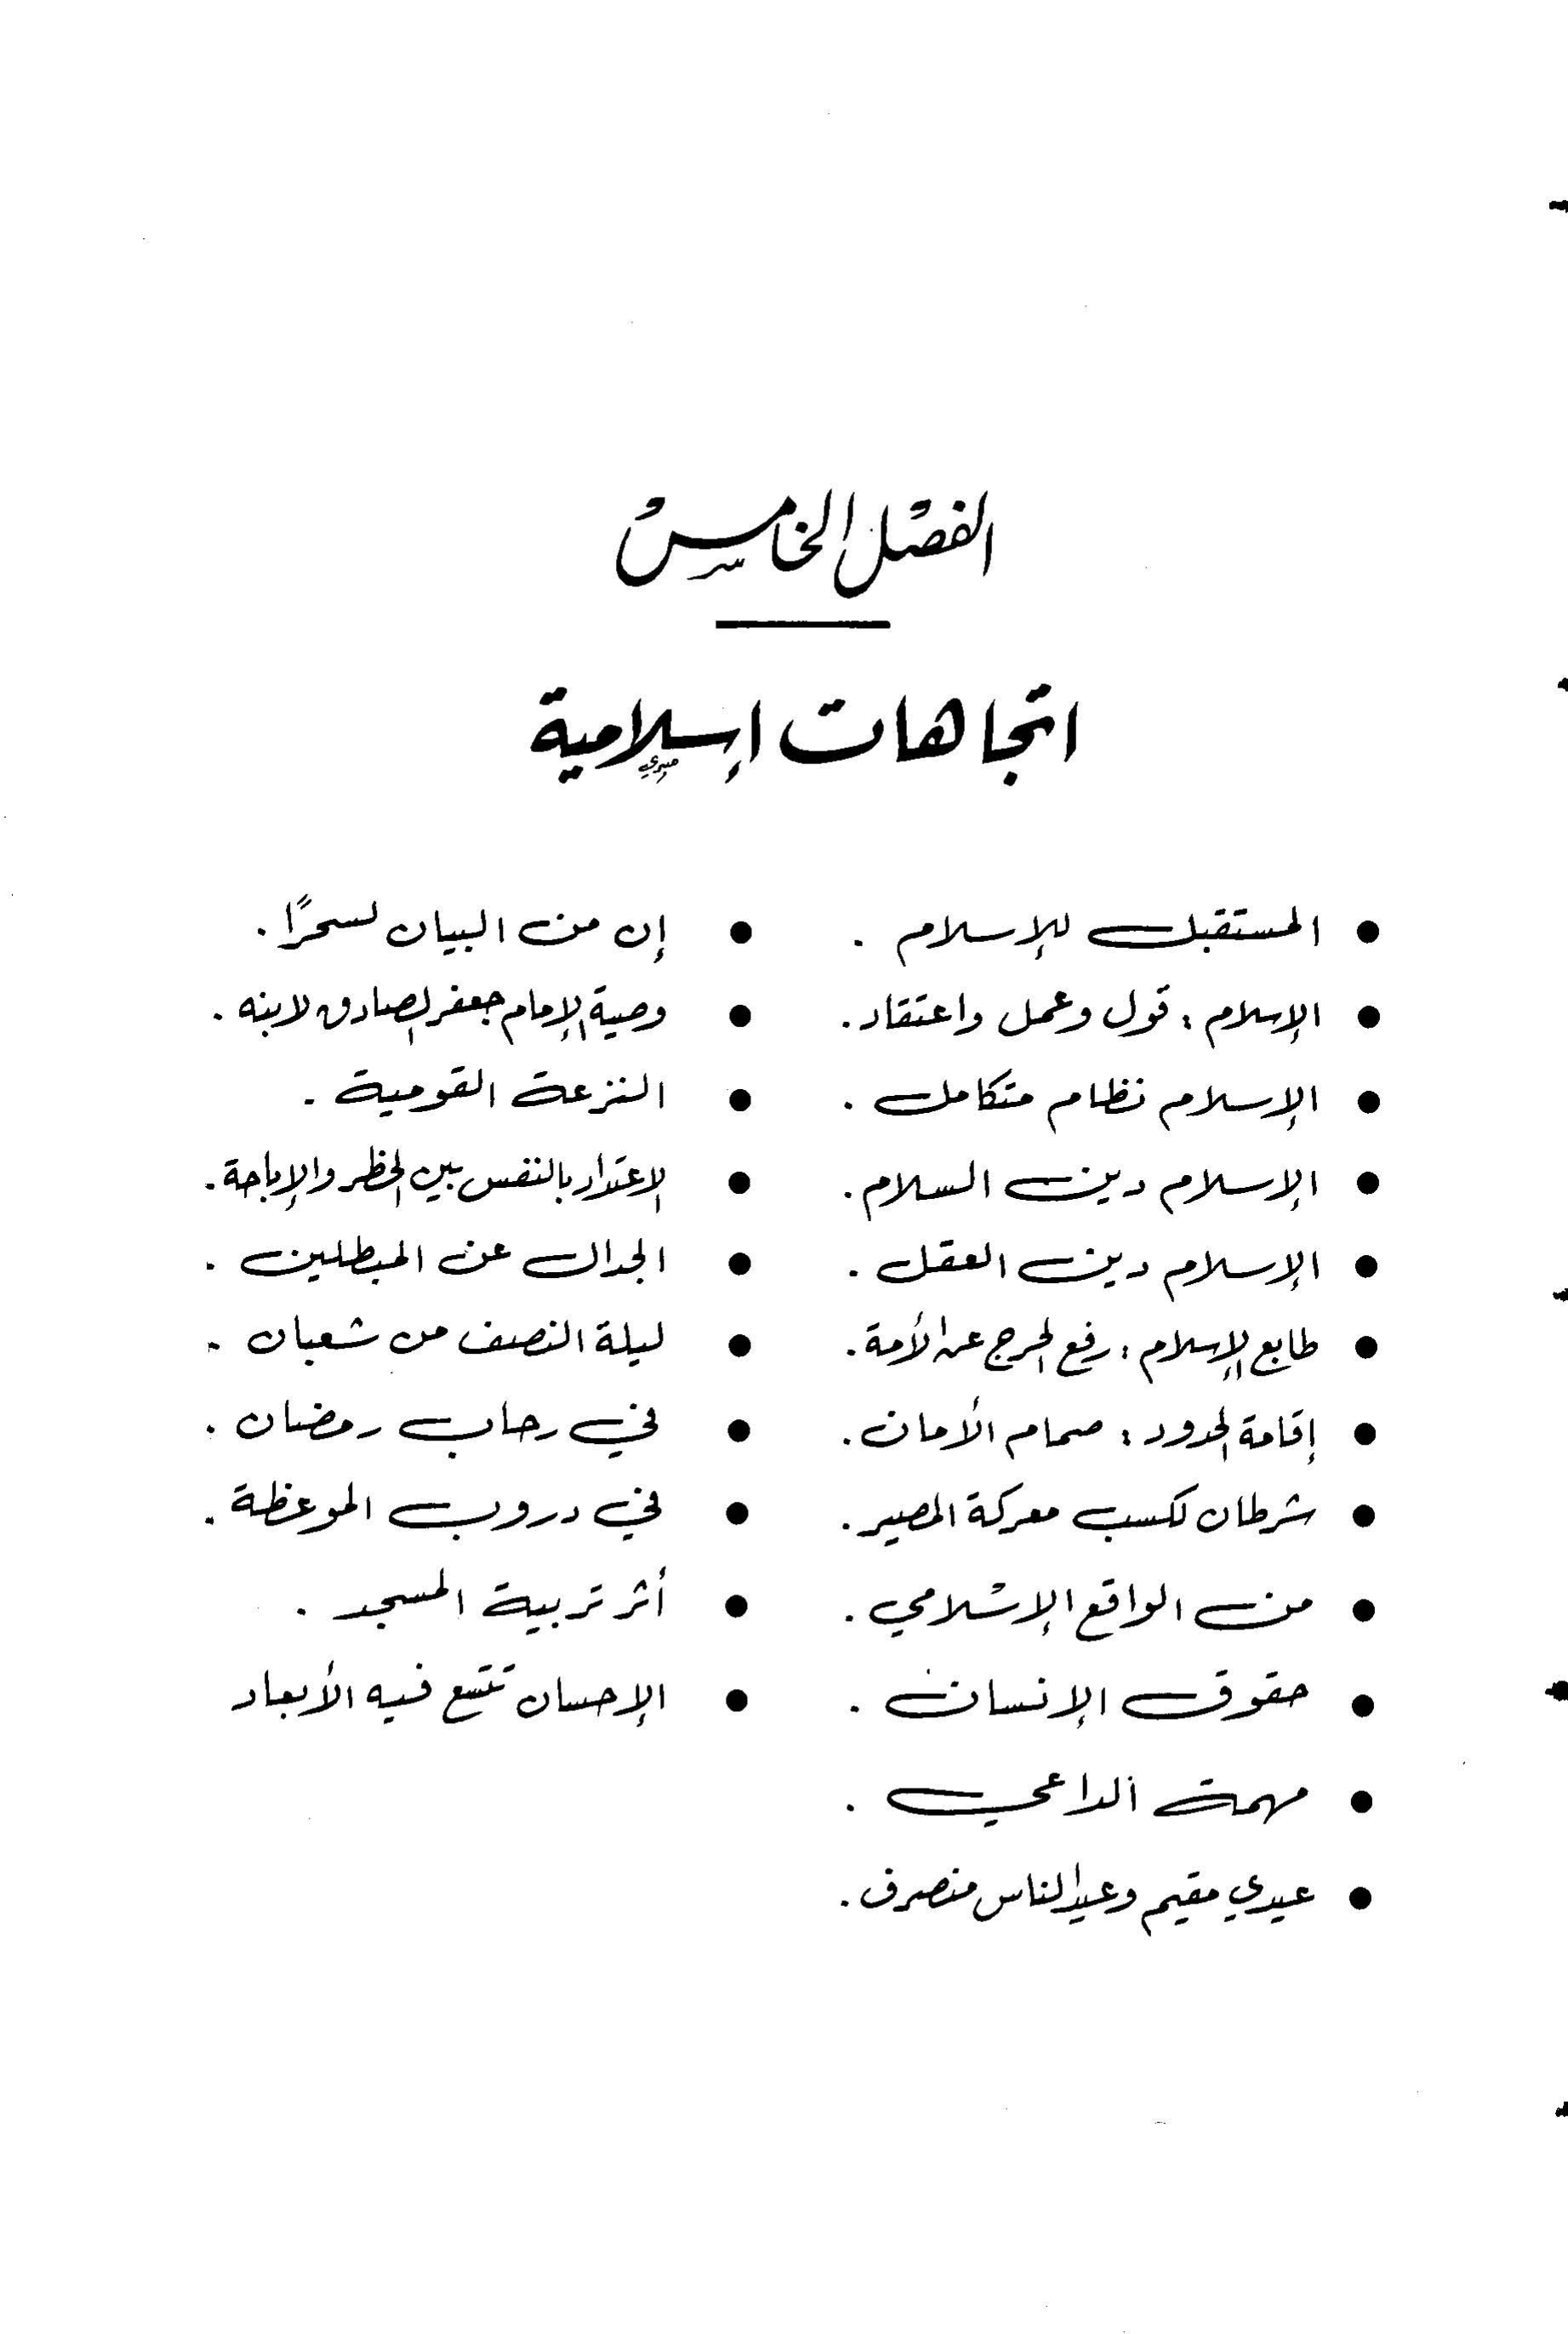 الفصل الخامس
اتجاهات إسلامية
● المستقبل للإسلام .
● الإسلام : قول وعمل واعتقاد .
● الإسلام نظام متكامل .
● الإسلام دين السلام .
● الإسلام دين العقل .
● طابع الإسلام : رفع الحرج عن الأمة .
● إقامة الحدود : صمام الأمان .
● شرطان لكسب معركة المصير .
● من الواقع الإسلامي .
● حقوق الإنسان .
● مهمة الداعي .
● عيدي مقيم وعيد الناس منصرف .
● إن من البيان لسحرًا .
● وصية الإمام جعفر الصادق لابنه .
● النزعة القومية .
● الاعتداد بالنفس بين الحظر والإباحة .
● الجدال عن المبطلين .
● ليلة النصف من شعبان .
● في رحاب رمضان .
● في دروب الموعظة .
● أثر تربية المسجد .
● الإحسان تتسع فيه الأبعاد